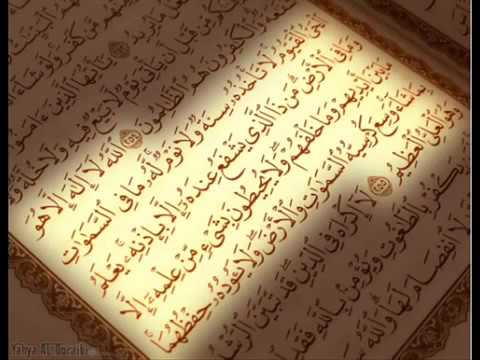 يَٰٓأَيُّهَا ٱلَّذِينَ ءَامَنُوٓا۟
مِّن قَبْلِ أَن يَأْتِىَ يَوْمٌ لَّا بَيْعٌ فِيهِ وَلَا خُلَّةٌ
وَٱلْكَٰفِرُونَ هُمُ ٱلظَّٰلِمُونَ ٢٥٤ ٱللَّهُ لَآ إِلَٰهَ إِلَّا هُوَ
ٱلْحَىُّ ٱلْقَيُّومُ لَا تَأْخُذُهُۥ سِنَةٌ وَلَا نَوْمٌ لَّهُۥ مَا فِى ٱلسَّمَٰوَٰتِ
وَمَا فِى ٱلْأَرْضِ مَن ذَا ٱلَّذِى يَشْفَعُ عِندَهُۥٓ إِلَّا بِإِذْنِهِۦ يَعْلَمُ
مَا بَيْنَ أَيْدِيهِمْ وَمَا خَلْفَهُمْ وَلَا يُحِيطُونَ بِشَىْءٍ مِّنْ عِلْمِهِۦٓ إِلَّا
بِمَا شَآءَ وَسِعَ كُرْسِيُّهُ ٱلسَّمَٰوَٰتِ وَٱلْأَرْضَ وَلَا يَـُٔودُهُۥ حِفْظُهُمَا
وَهُوَ ٱلْعَلِىُّ ٱلْعَظِيمُ ٢٥٥ لَآ إِكْرَاهَ فِى ٱلدِّينِ قَد تَّبَيَّنَ ٱلرُّشْدُ
يَكْفُرْ بِٱلطَّٰغُوتِ وَيُؤْمِنۢ بِٱللَّهِ فَقَدِ
لَا ٱنفِصَامَ لَهَا وَٱللَّهُ